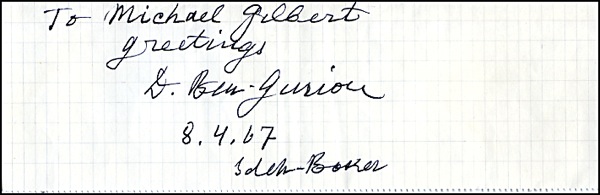 To Michael Gilbert
greetings
D. Ben-Gurion
8.4.67
Sdeh-Boker